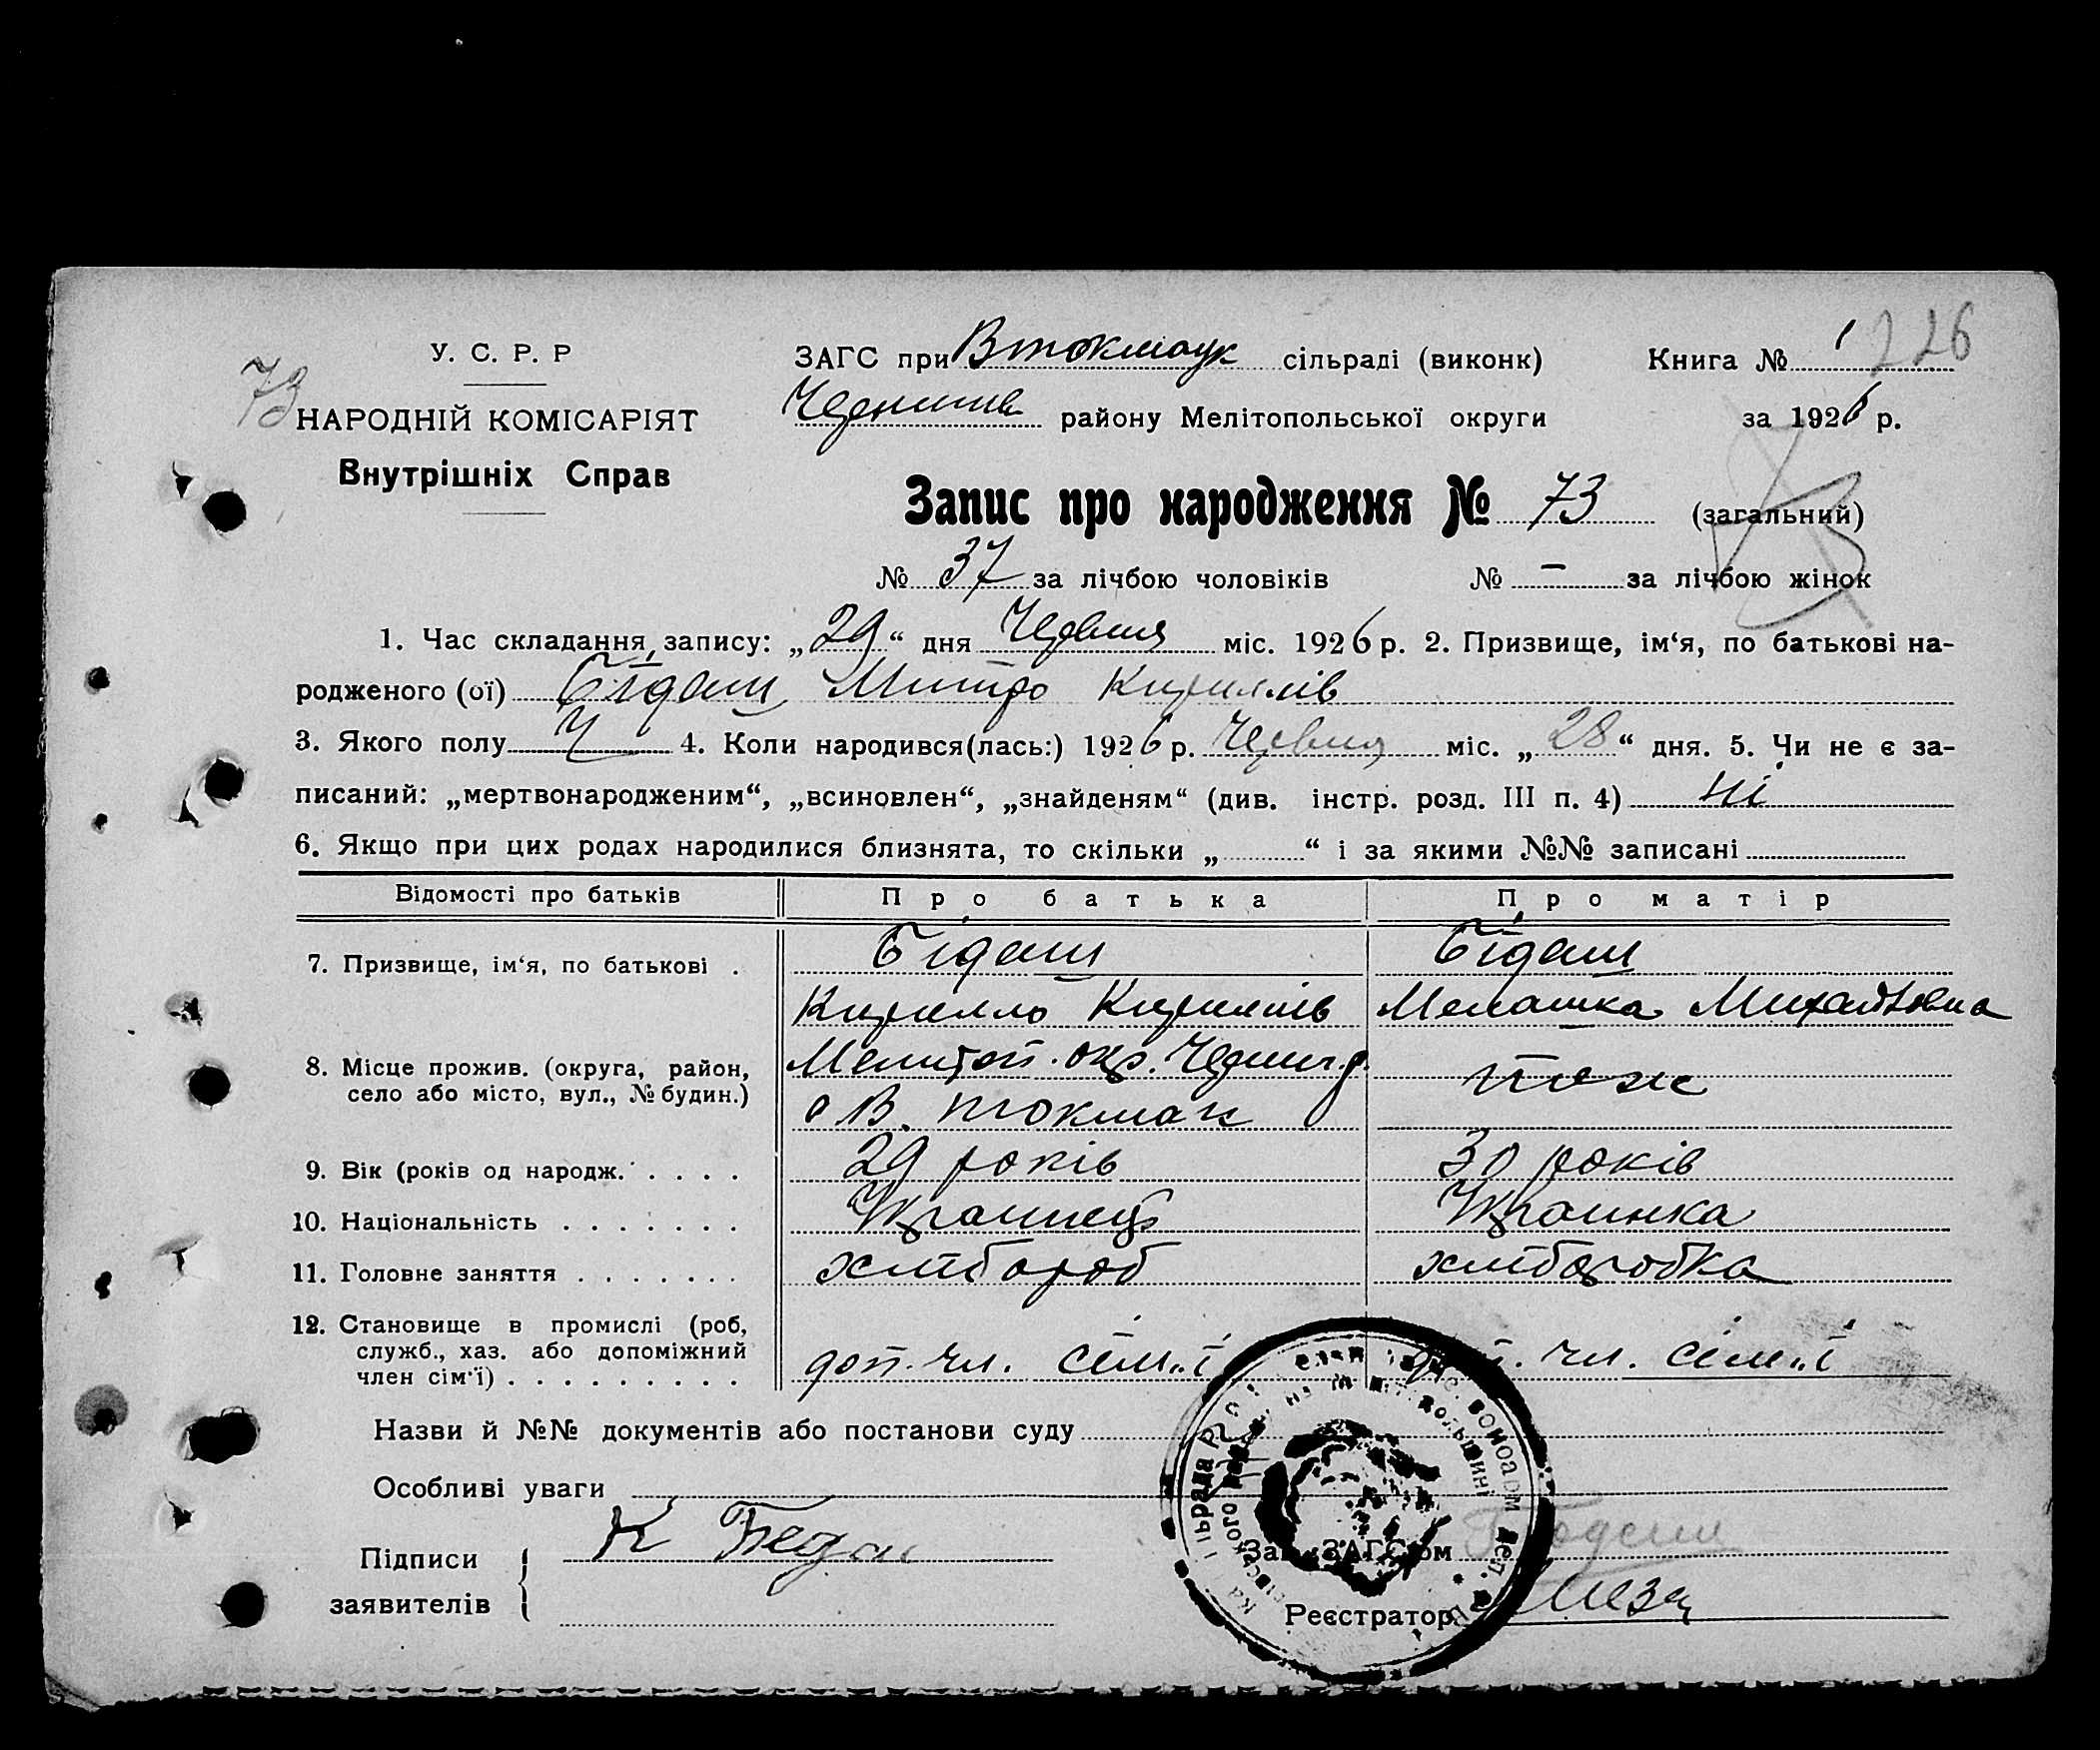 226
У. С. Р. Р
ЗАГС при Втокмацк сільраді (виконк)
Книга № 1
73
НАРОДНІЙ КОМІСАРІЯТ
району Мелітопольської округи
за 1926 р.
Внутрішніх Справ
Запис про народження № 73 (загальний)
№ 37 за лічбою чоловіків № – за лічбою жінок
1. Час складання запису: „29“ дня Червня міс. 1926 р. 2. Призвище, ім‘я, по батькові на-
родженого (ої) Бідаш Митро Кириллів
3. Якого полу Ч 4. Коли народився(лась:) 1926 р. Червня міс. „28“ дня. 5. Чи не є за-
писаний: „мертвонародженим“, „всиновлен“, „знайденям“ (див. інстр. розд. III п. 4) ні
6. Якщо при цих родах народилися близнята, то скільки „ “ і за якими №№ записані
Відомості про батьків Про батька Про матір
7. Призвище, ім‘я, по батькові . Бідаш Бідаш
Кирилло Кириллів Мелашка Михайловна
8. Місце прожив. (округа, район, село або місто, вул., № будин.) Мелитоп. окр. тож
с В. токмак
9. Вік (років од народж. . . . . 29 років 30 років
10. Національність . . . . . . . Украинець Украинка
11. Головне заняття . . . . . . . хлібороб хліборобка
12. Становище в промислі (роб, служб., хаз. або допоміжний член сім‘ї) . . . . . . . . . доп. чл. сем'ї доп. чл. сем'ї
Назви й №№ документів або постанови суду
Особливі уваги
Підписи заявителів
К Беда
Зав. ЗАГС'ом
Реєстратор